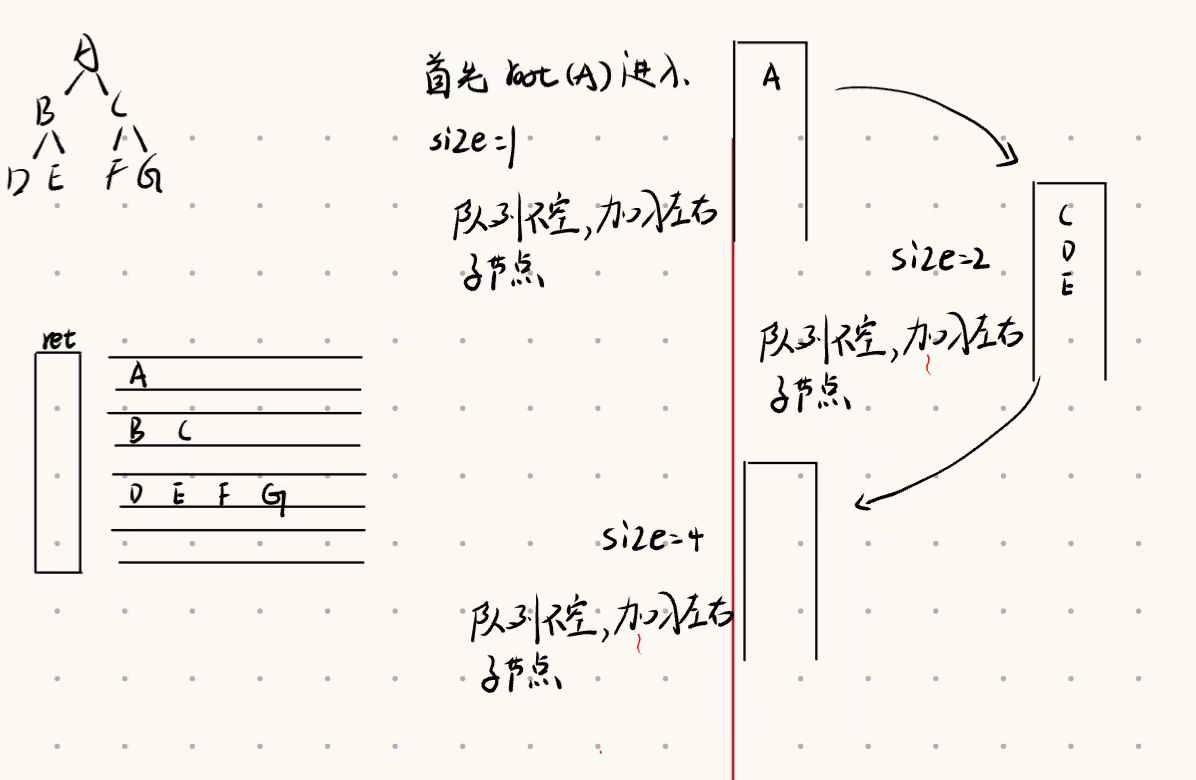 A
B C
D E F G
首先 root(A)进入
size=1
队列不空,加入左右
子节点
A
size=2
队列不空,加入左右
子节点
C
D
E
ret
A
B C
D E F G
size=4
队列不空,加入左右
子节点